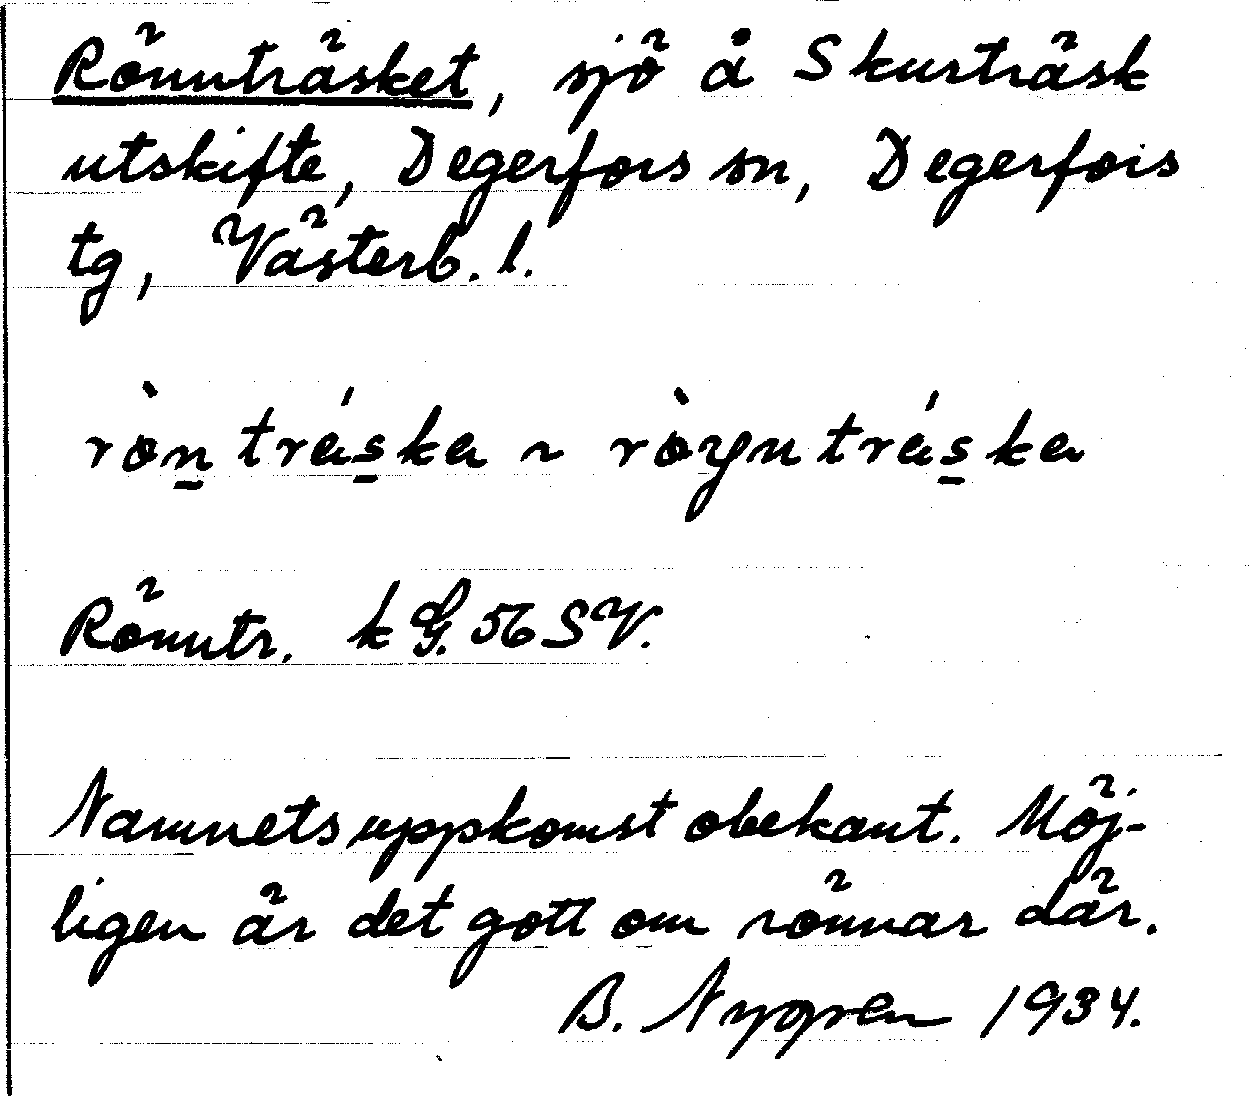 Rönnträsket, sjö å Skurträsk
utskifte, Degerfors sn, Degerfors
tg, Västerb. l.
Rönntr. k G. 56 SV.
Namnets uppkomst obekant. Möj-
ligen är det gott om rönnar där.
B. Nygren 1934.